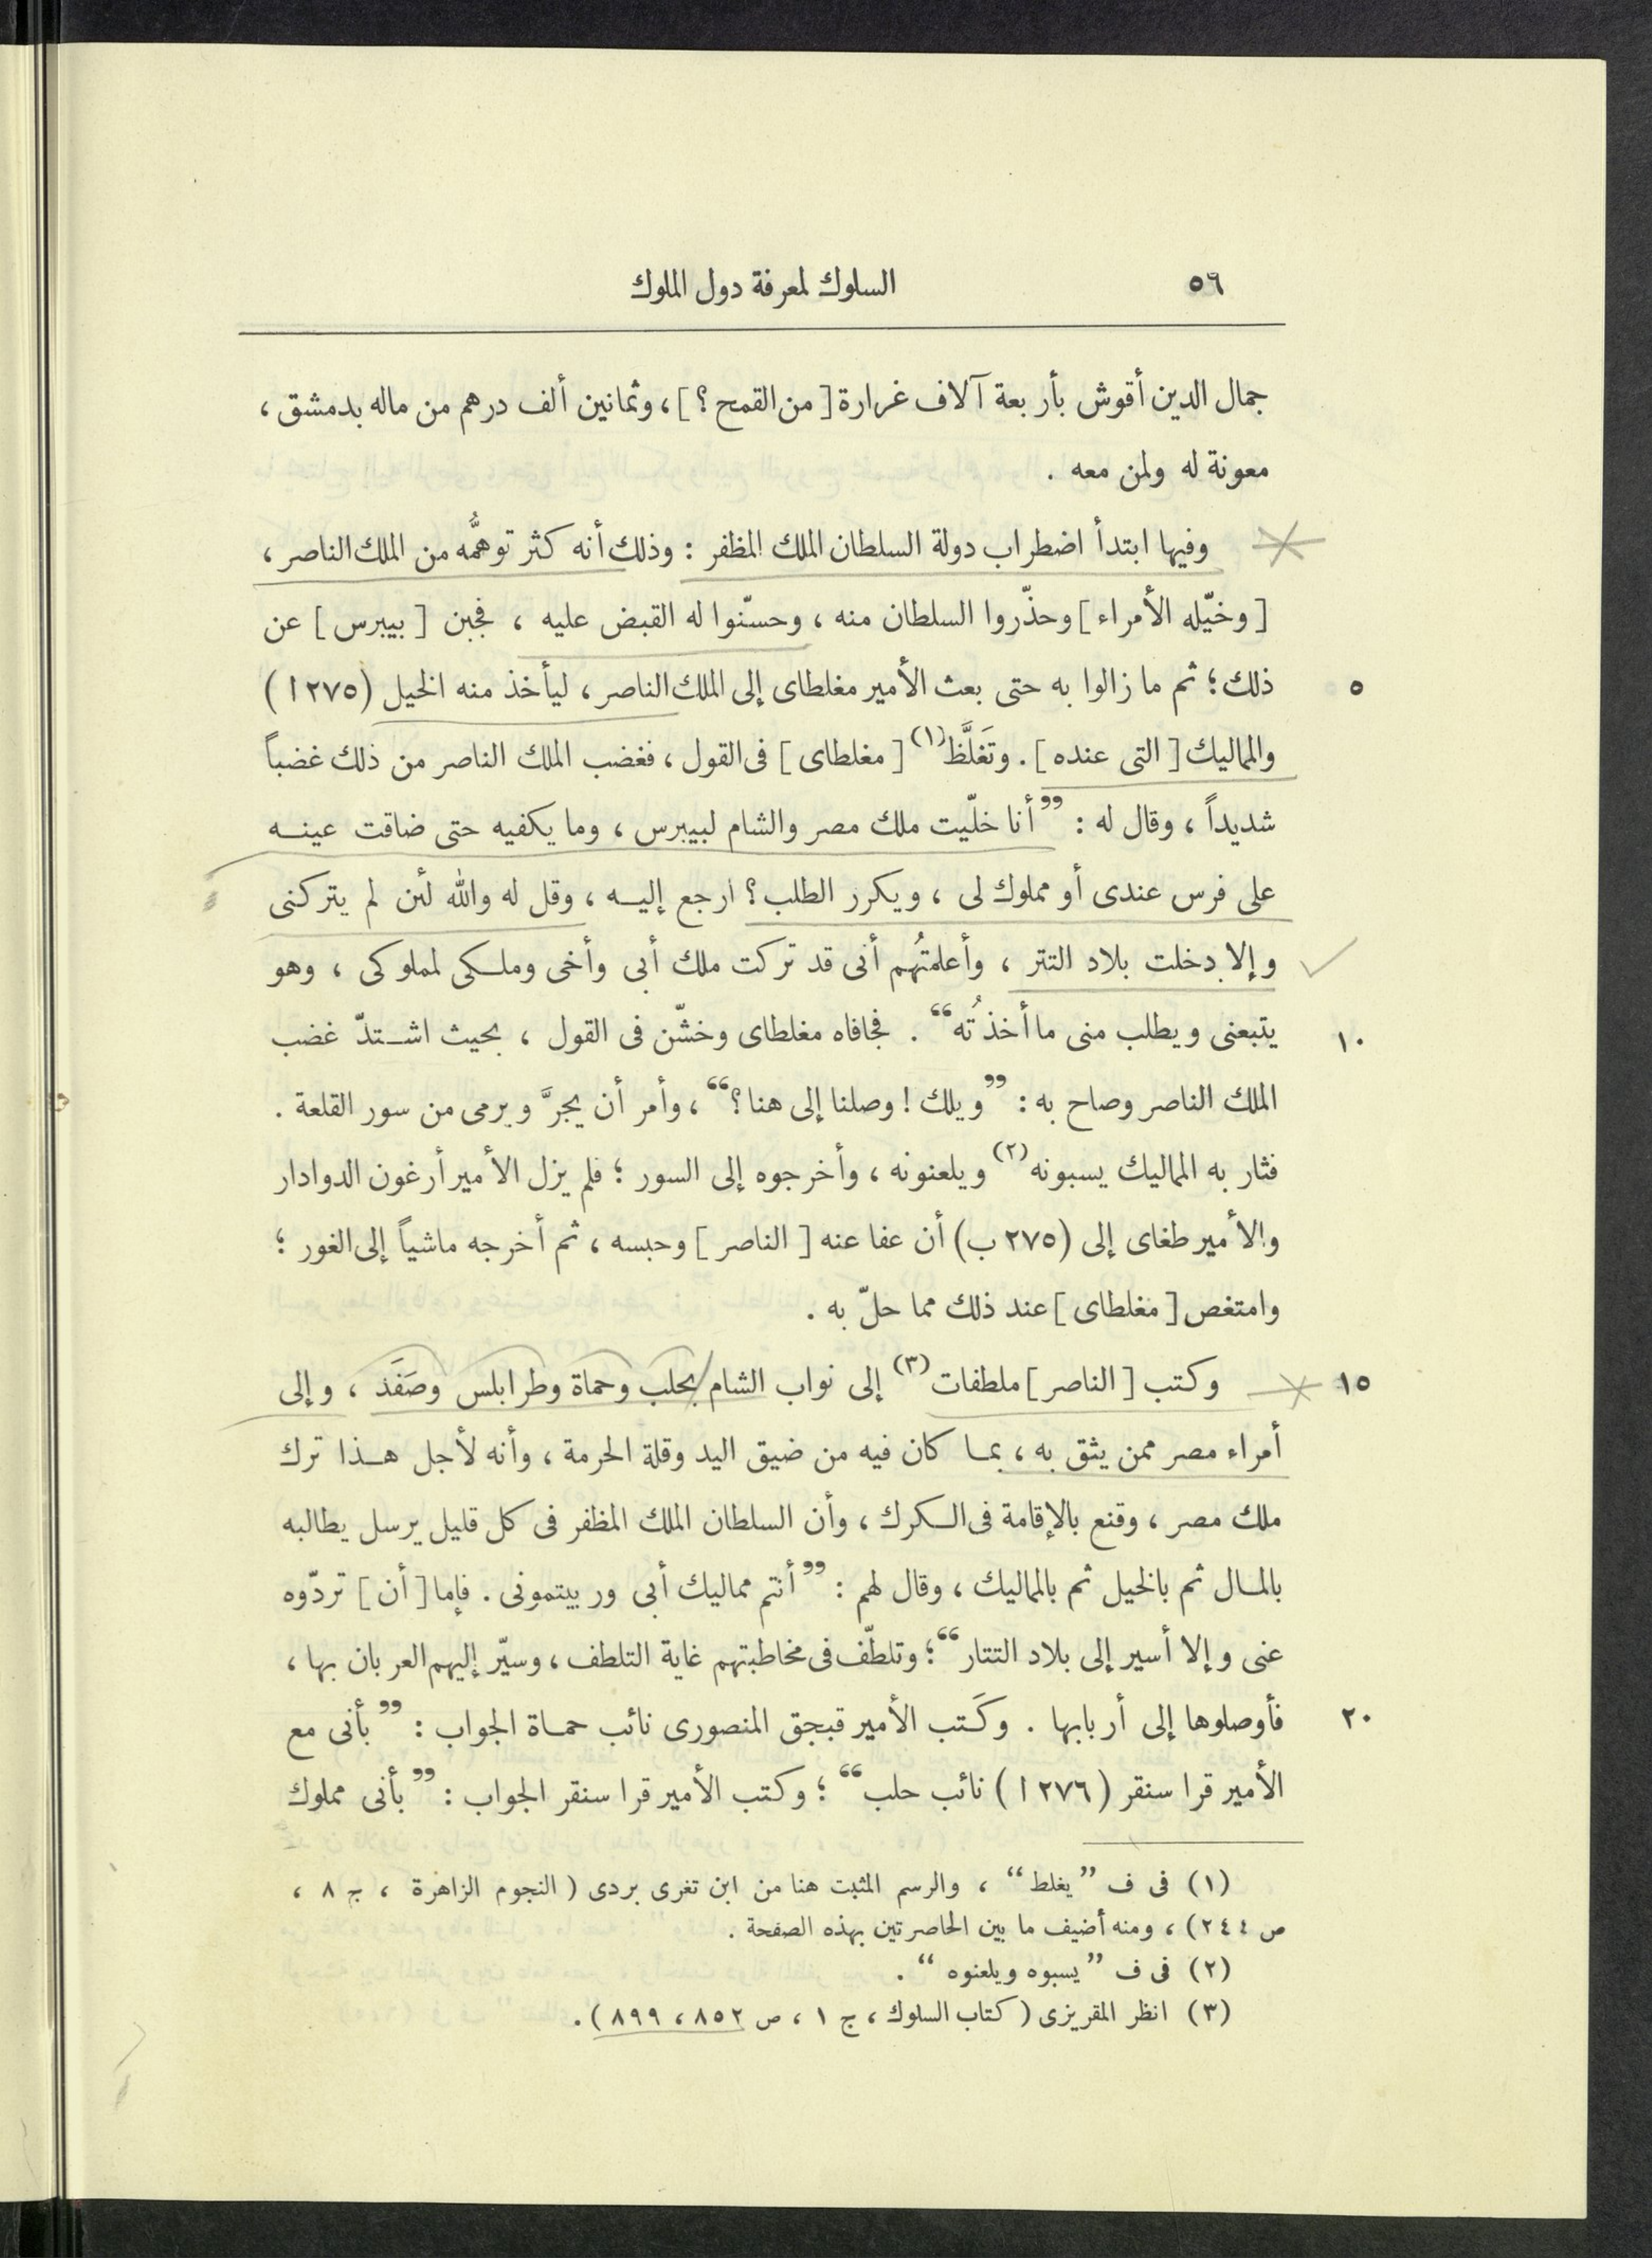 ٥٦ السلوك لمعرفة دول الملوك
جمال الدين أقوش بأربعة آلاف غرارة [من القمح ؟]، وثمانين ألف درهم من ماله بدمشق ،
معونة له ولمن معه .
وفيها ابتدأ اضطراب دولة السلطان الملك المظفر : وذلك أنه كثر توهُّمه من الملك الناصر ،
[وخيّله الأمراء] وحذّروا السلطان منه ، وحسّنوا له القبض عليه ، فجبن [بيبرس] عن
٥ ذلك ؛ ثم ما زالوا به حتى بعث الأمير مغلطاى إلى الملك الناصر ، ليأخذ منه الخيل (٢٧٥ ا)
والمماليك [التى عنده] . وتَغلَّظ(١) [مغلطاى] فى القول ، فغضب الملك الناصر من ذلك غضباً
شديداً ، وقال له : ”أنا خلّيت ملك مصر والشام لبيبرس ، وما يكفيه حتى ضاقت عينه
على فرس عندى أو مملوك لى ، ويكرر الطلب ؟ ارجع إليه ، وقل له والله لئن لم يتركنى
وإلا دخلت بلاد التتر ، وأعلمتُهم أنى قد تركت ملك أبى وأخى وملكى لمملوكى ، وهو
١٠ يتبعنى ويطلب منى ما أخذتُه“ . فجافاه مغلطاى وخشّن فى القول ، بحيث اشتدّ غضب
الملك الناصر وصاح به : ”ويلك ! وصلنا إلى هنا ؟“ ، وأمر أن يجرَّ ويرمى من سور القلعة .
فثار به المماليك يسبونه(٢) ويلعنونه ، وأخرجوه إلى السور ؛ فلم يزل الأمير أرغون الدوادار
والأمير طغاى إلى (٢٧٥ ب) أن عفا عنه [الناصر] وحبسه ، ثم أخرجه ماشياً إلى الغور ؛
وامتغص [مغلطاى] عند ذلك مما حلّ به .
١٥ وكتب [الناصر] ملطفات(٣) إلى نواب الشام بحلب وحماة وطرابلس وصَفَد ، وإلى
أمراء مصر ممن يثق به ، بما كان فيه من ضيق اليد وقلة الحرمة ، وأنه لأجل هذا ترك
ملك مصر ، وقنع بالإقامة فى الكرك ، وأن السلطان الملك المظفر فى كل قليل يرسل يطالبه
بالمال ثم بالخيل ثم بالمماليك ، وقال لهم : ”أنتم مماليك أبى وربيتمونى . فإما [أن] تردّوه
عنى وإلا أسير إلى بلاد التتار“ ؛ وتلطّف فى مخاطبتهم غاية التلطف ، وسيّر إليهم العربان بها ،
٢٠ فأوصلوها إلى أربابها . وكَتب الأمير قبجق المنصورى نائب حماة الجواب : ”بأنى مع
الأمير قرا سنقر (٢٧٦ ا) نائب حلب“ ؛ وكتب الأمير قرا سنقر الجواب : ”بأنى مملوك
(١) فى ف ”يغلط“ ، والرسم المثبت هنا من ابن تغرى بردى (النجوم الزاهرة ، ج ٨ ،
ص ٢٤٤) ، ومنه أضيف ما بين الحاصرتين بهذه الصفحة .
(٢) فى ف ”يسبوه ويلعنوه“ .
(٣) انظر المقريزى (كتاب السلوك ، ج ١ ، ص ٨٥٢ ، ٨٩٩) .